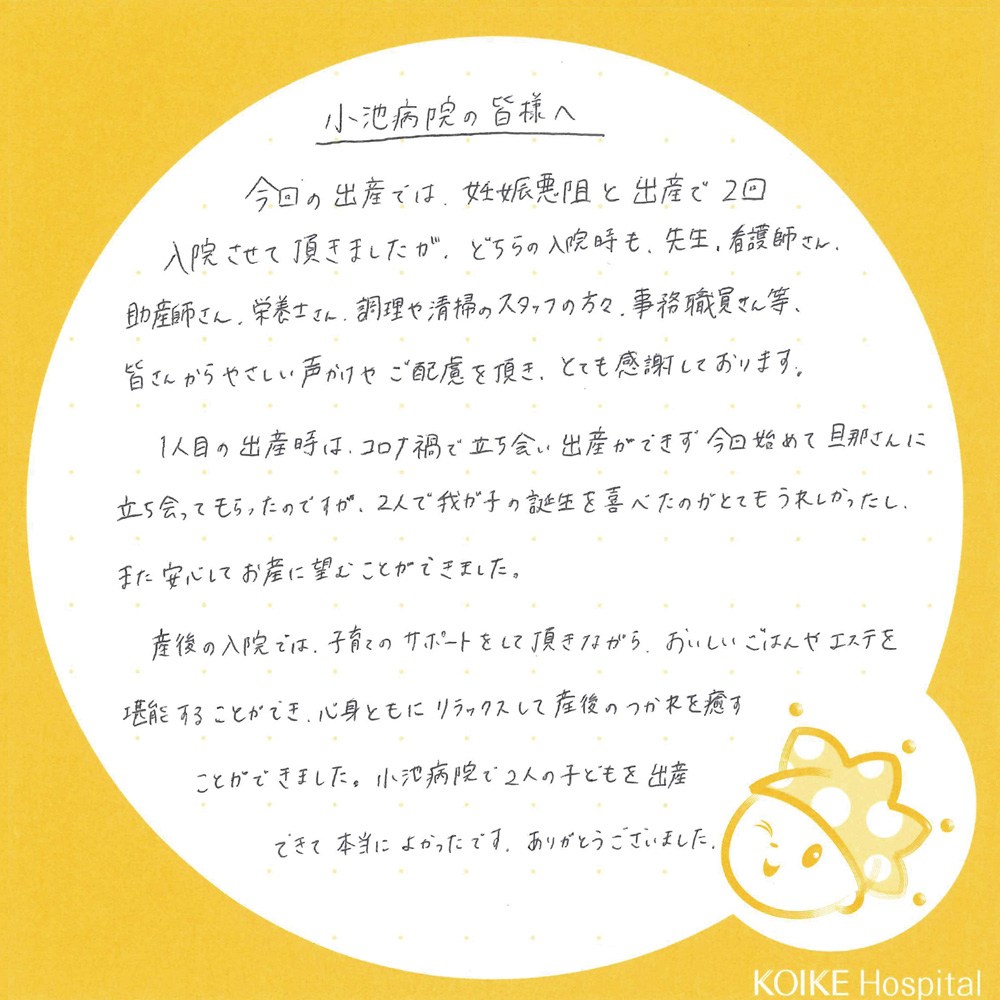 小池病院の皆様へ
今回の出産では、妊娠悪阻と出産で2回
入院させて頂きましたが、どちらの入院時も、先生、看護師さん、
助産師さん、栄養士さん、調理や清掃のスタッフの方々、事務職員さん等、
皆さんからやさしい声かけやご配慮を頂き、とても感謝しております。
1人目の出産時は、コロナ禍で立ち会い出産ができず今回始めて旦那さんに
立ち会ってもらったのですが、2人で我が子の誕生を喜べたのがとてもうれしかったし、
また安心してお産に望むことができました。
産後の入院では、子育てのサポートをして頂きながら、おいしいごはんやエステを
堪能することができ、心身ともにリラックスして産後のつかれを癒す
ことができました。小池病院で2人の子どもを出産
できて本当によかったです。ありがとうございました。
KOIKE Hospital